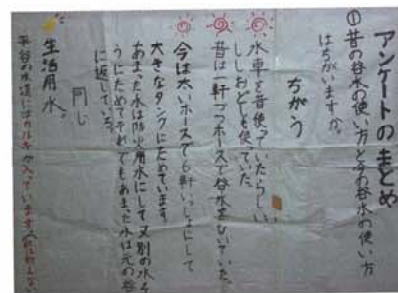 アンケートのまとめ
①昔の谷水の使い方と今の谷水の使い方
はちがいますか。
ちがう
水車を昔使っていたらしい
ししおどしを使っていた
昔は一軒づつホースで谷水をひいていた。
今は太いホースで6軒いっしょにして
大きなタンクにためています
あまった水は防火用水にして又別の水そ
うにためてそれでもあまった水は元の谷
に返している。
同じ
生活用水。
平谷の水道にはカルキが入っています